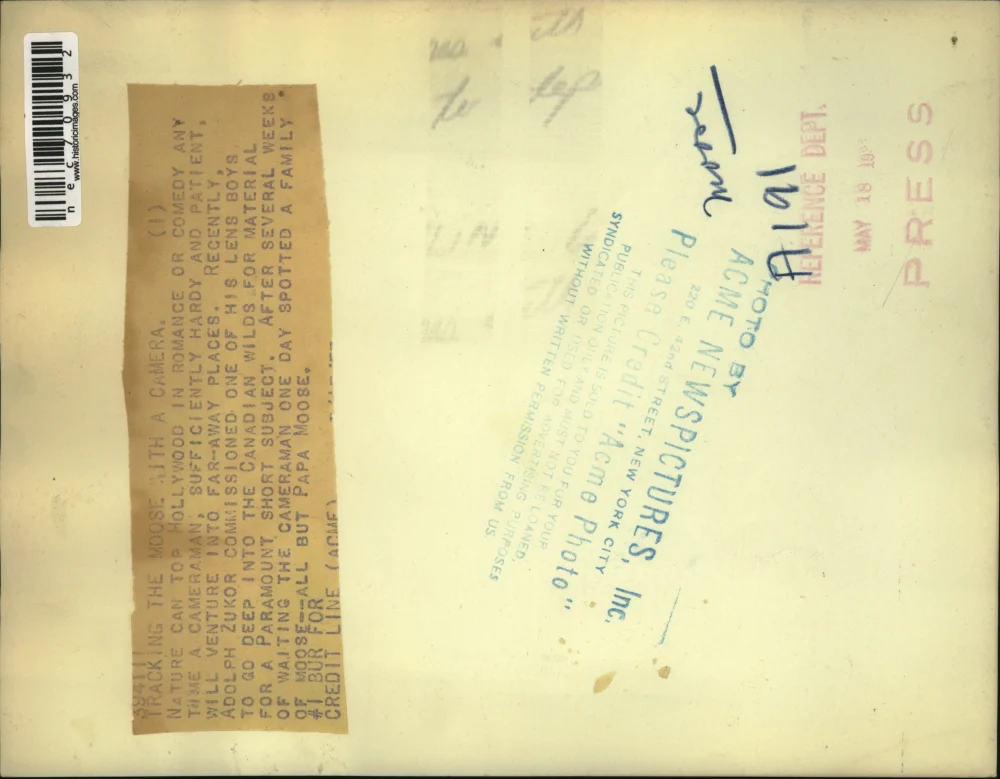 39411
TRACKING THE MOOSE WITH A CAMERA. (1)
NATURE CAN TOP HOLLYWOOD IN ROMANCE OR COMEDY ANY
TIME A CAMERAMAN, SUFFICIENTLY HARDY AND PATIENT,
WILL VENTURE INTO FAR-AWAY PLACES. RECENTLY,
ADOLPH ZUKOR COMMISSIONED ONE OF HIS LENS BOYS
TO GO DEEP INTO THE CANADIAN WILDS FOR MATERIAL
FOR A PARAMOUNT SHORT SUBJECT. AFTER SEVERAL WEEKS
OF WAITING THE CAMERAMAN ONE DAY SPOTTED A FAMILY
OF MOOSE--ALL BUT PAPA MOOSE.
#1 BUR FOR
CREDIT LINE (ACME)
nec70932
www.historicimages.com
moose
A1191
REFERENCE DEPT.
MAY 18
PRESS
PHOTO BY
ACME NEWSPICTURES, Inc.
220 E. 42nd STREET, NEW YORK CITY
Please Credit "Acme Photo"
THIS PICTURE IS SOLD TO YOU FOR YOUR
PUBLICATION ONLY AND MUST NOT BE LOANED,
SYNDICATED OR USED FOR ADVERTISING PURPOSES
WITHOUT WRITTEN PERMISSION FROM US